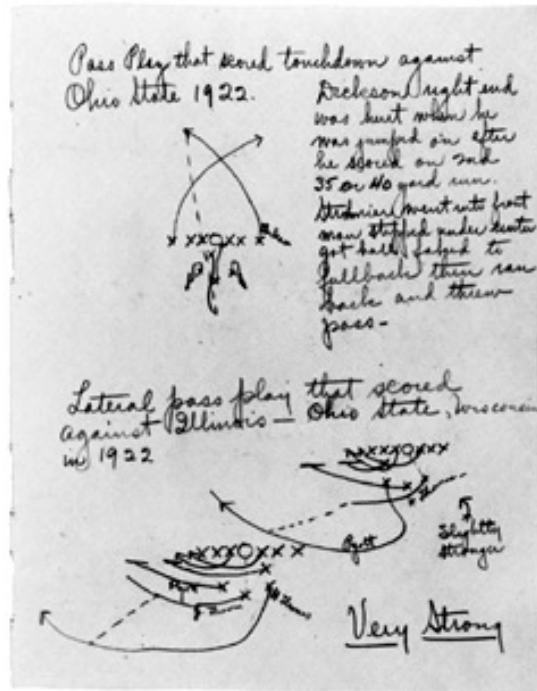 Pass Play that scored touchdown against
Ohio State 1922.
Dickson right end
was hurt when he
was jumped on after
he scored on 2nd
35 or 40 yard run.
went into front
man stepped under center
got ball faked to
fullback then ran
back and threw
pass-
Lateral pass play that scored
against Illinois — Ohio State, Wisconsin
in 1922
Slightly
stronger
Very Strong